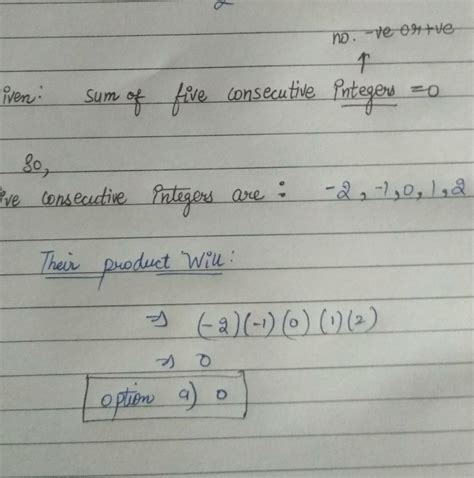 2
no. -ve or +ve
↑
iven: sum of five consecutive Integers = 0
So,
ive consecutive Integers are : -2, -1, 0, 1, 2
Their product Will:
⇒ (-2)(-1)(0)(1)(2)
⇒ 0
option a) 0